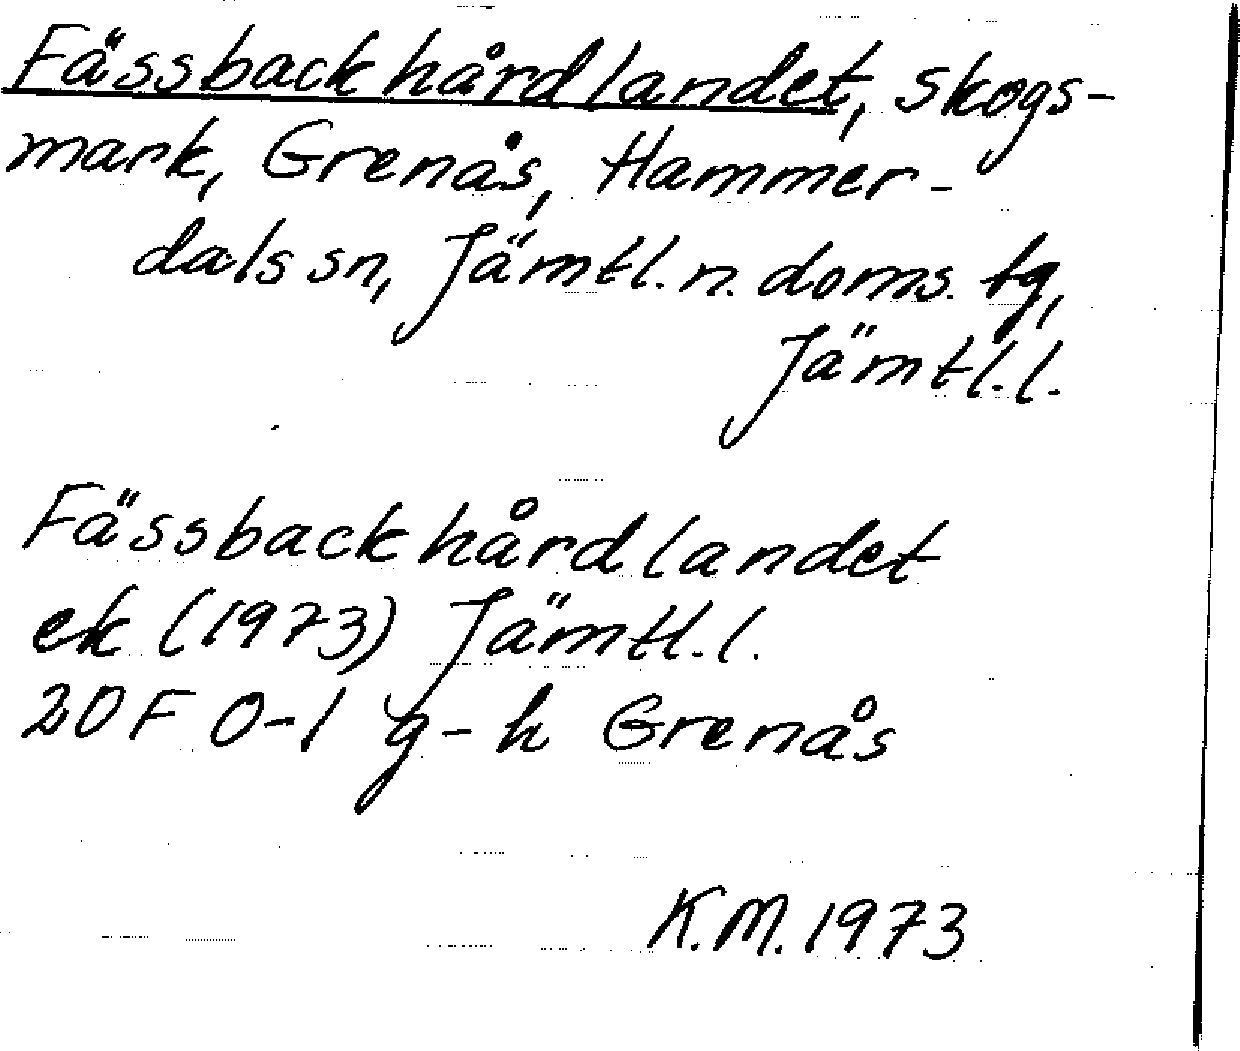 Fässbackhårdlandet, skogs-
mark, Grenås, Hammer-
dals sn, Jämtl. n. doms. tg,
Jämtl. l.
Fässbackhårdlandet
ek (1973) Jämtl. l.
20F 0-1 g-h Grenås
K.M. 1973